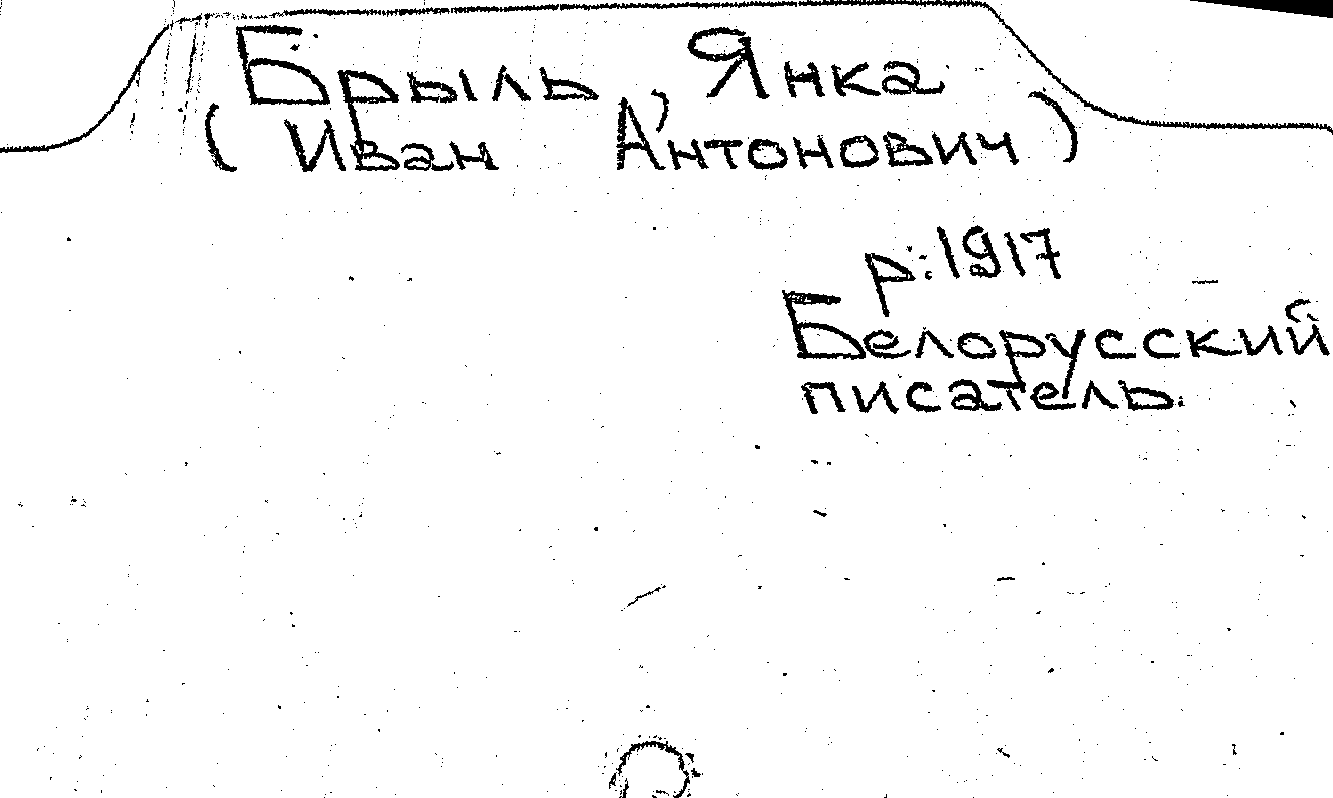 Брыль, Янка
(Иван Антонович)
р. 1917
Белорусский
писатель.